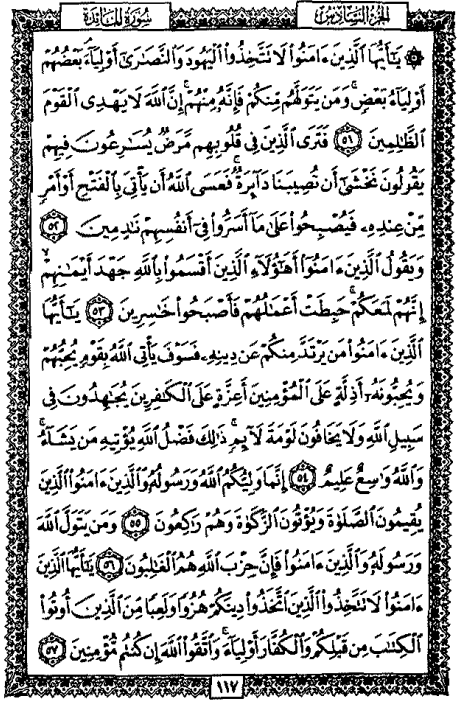 سُورَةُ المَائِدَةِ الجُزْءُ السَّادِسُ
۞ يَٰٓأَيُّهَا ٱلَّذِينَ ءَامَنُوا۟ لَا تَتَّخِذُوا۟ ٱلْيَهُودَ وَٱلنَّصَٰرَىٰٓ أَوْلِيَآءَ ۘ بَعْضُهُمْ
أَوْلِيَآءُ بَعْضٍ ۚ وَمَن يَتَوَلَّهُم مِّنكُمْ فَإِنَّهُۥ مِنْهُمْ ۗ إِنَّ ٱللَّهَ لَا يَهْدِى ٱلْقَوْمَ
ٱلظَّٰلِمِينَ ﴿٥١﴾ فَتَرَى ٱلَّذِينَ فِى قُلُوبِهِم مَّرَضٌ يُسَٰرِعُونَ فِيهِمْ
يَقُولُونَ نَخْشَىٰٓ أَن تُصِيبَنَا دَآئِرَةٌ ۚ فَعَسَى ٱللَّهُ أَن يَأْتِىَ بِٱلْفَتْحِ أَوْ أَمْرٍ
مِّنْ عِندِهِۦ فَيُصْبِحُوا۟ عَلَىٰ مَآ أَسَرُّوا۟ فِىٓ أَنفُسِهِمْ نَٰدِمِينَ ﴿٥٢﴾
وَيَقُولُ ٱلَّذِينَ ءَامَنُوٓا۟ أَهَٰٓؤُلَآءِ ٱلَّذِينَ أَقْسَمُوا۟ بِٱللَّهِ جَهْدَ أَيْمَٰنِهِمْ ۙ
إِنَّهُمْ لَمَعَكُمْ ۚ حَبِطَتْ أَعْمَٰلُهُمْ فَأَصْبَحُوا۟ خَٰسِرِينَ ﴿٥٣﴾ يَٰٓأَيُّهَا
ٱلَّذِينَ ءَامَنُوا۟ مَن يَرْتَدَّ مِنكُمْ عَن دِينِهِۦ فَسَوْفَ يَأْتِى ٱللَّهُ بِقَوْمٍ يُحِبُّهُمْ
وَيُحِبُّونَهُۥٓ أَذِلَّةٍ عَلَى ٱلْمُؤْمِنِينَ أَعِزَّةٍ عَلَى ٱلْكَٰفِرِينَ يُجَٰهِدُونَ فِى
سَبِيلِ ٱللَّهِ وَلَا يَخَافُونَ لَوْمَةَ لَآئِمٍ ۚ ذَٰلِكَ فَضْلُ ٱللَّهِ يُؤْتِيهِ مَن يَشَآءُ ۚ
وَٱللَّهُ وَٰسِعٌ عَلِيمٌ ﴿٥٤﴾ إِنَّمَا وَلِيُّكُمُ ٱللَّهُ وَرَسُولُهُۥ وَٱلَّذِينَ ءَامَنُوا۟ ٱلَّذِينَ
يُقِيمُونَ ٱلصَّلَوٰةَ وَيُؤْتُونَ ٱلزَّكَوٰةَ وَهُمْ رَٰكِعُونَ ﴿٥٥﴾ وَمَن يَتَوَلَّ ٱللَّهَ
وَرَسُولَهُۥ وَٱلَّذِينَ ءَامَنُوا۟ فَإِنَّ حِزْبَ ٱللَّهِ هُمُ ٱلْغَٰلِبُونَ ﴿٥٦﴾ يَٰٓأَيُّهَا ٱلَّذِينَ
ءَامَنُوا۟ لَا تَتَّخِذُوا۟ ٱلَّذِينَ ٱتَّخَذُوا۟ دِينَكُمْ هُزُوًا وَلَعِبًا مِّنَ ٱلَّذِينَ أُوتُوا۟
ٱلْكِتَٰبَ مِن قَبْلِكُمْ وَٱلْكُفَّارَ أَوْلِيَآءَ ۚ وَٱتَّقُوا۟ ٱللَّهَ إِن كُنتُم مُّؤْمِنِينَ ﴿٥٧﴾
١١٧